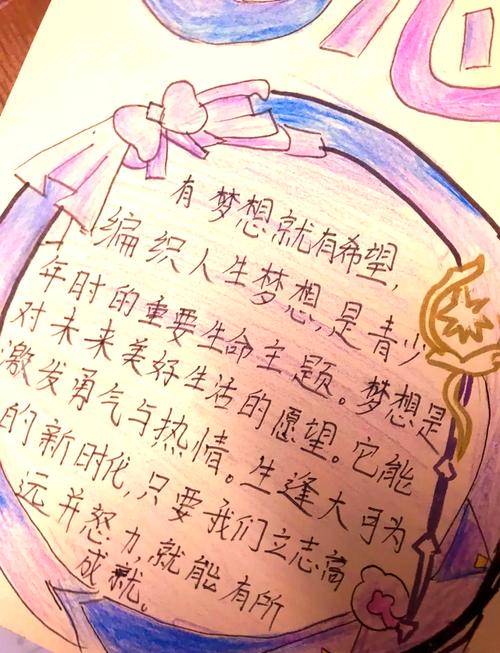 有梦想就有希望,
编织人生梦想,是青少
年时的重要生命主题。梦想是
对未来美好生活的愿望。它能
激发勇气与热情。生逢大可为
的新时化,只要我们立志高
远并怒力,就能有所
成就。